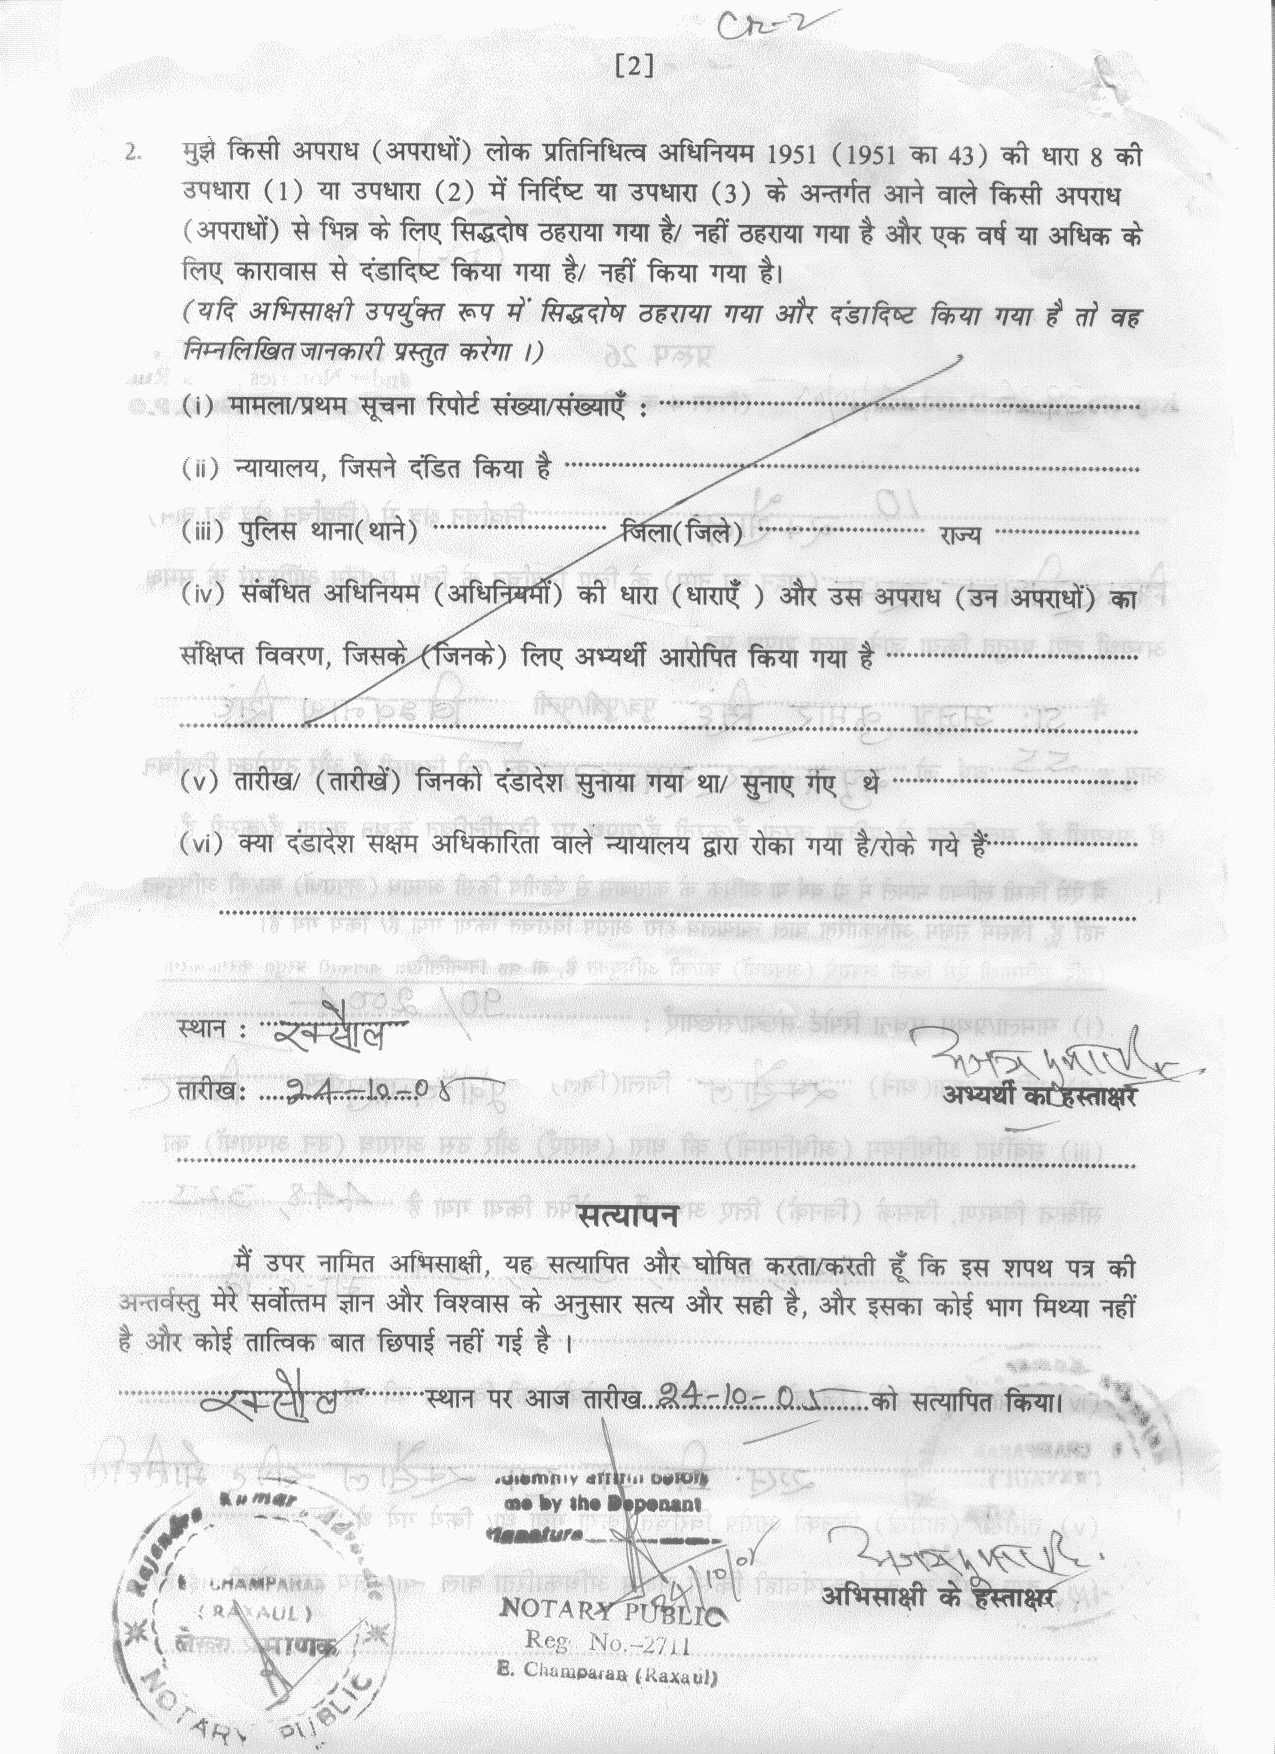 Cr-2
[2]
2. मुझे किसी अपराध (अपराधों) लोक प्रतिनिधित्व अधिनियम 1951 (1951 का 43) की धारा 8 की
उपधारा (1) या उपधारा (2) में निर्दिष्ट या उपधारा (3) के अन्तर्गत आने वाले किसी अपराध
(अपराधों) से भिन्न के लिए सिद्धदोष ठहराया गया है/ नहीं ठहराया गया है और एक वर्ष या अधिक के
लिए कारावास से दंडादिष्ट किया गया है/ नहीं किया गया है।
(यदि अभिसाक्षी उपर्युक्त रूप में सिद्धदोष ठहराया गया और दंडादिष्ट किया गया है तो वह
निम्नलिखित जानकारी प्रस्तुत करेगा ।)
(i) मामला/प्रथम सूचना रिपोर्ट संख्या/संख्याएँ :
(ii) न्यायालय, जिसने दंडित किया है
(iii) पुलिस थाना(थाने) जिला(जिले) राज्य
(iv) संबंधित अधिनियम (अधिनियमों) की धारा (धाराएँ ) और उस अपराध (उन अपराधों) का
संक्षिप्त विवरण, जिसके (जिनके) लिए अभ्यर्थी आरोपित किया गया है
(v) तारीख/ (तारीखें) जिनको दंडादेश सुनाया गया था/ सुनाए गए थे
(vi) क्या दंडादेश सक्षम अधिकारिता वाले न्यायालय द्वारा रोका गया है/रोके गये हैं
स्थान : रक्सौल
तारीख: 24-10-05
अभ्यर्थी का हस्ताक्षर
सत्यापन
मैं उपर नामित अभिसाक्षी, यह सत्यापित और घोषित करता/करती हूँ कि इस शपथ पत्र की
अन्तर्वस्तु मेरे सर्वोत्तम ज्ञान और विश्वास के अनुसार सत्य और सही है, और इसका कोई भाग मिथ्या नहीं
है और कोई तात्विक बात छिपाई नहीं गई है ।
रक्सौल स्थान पर आज तारीख 24-10-05 को सत्यापित किया।
me by the Deponant
24/10/05
अभिसाक्षी के हस्ताक्षर
NOTARY PUBLIC
Reg. No.-2711
E. Champaran (Raxaul)
Rajendra Kumar
CHAMPARAN
(RAXAUL)
NOTARY PUBLIC